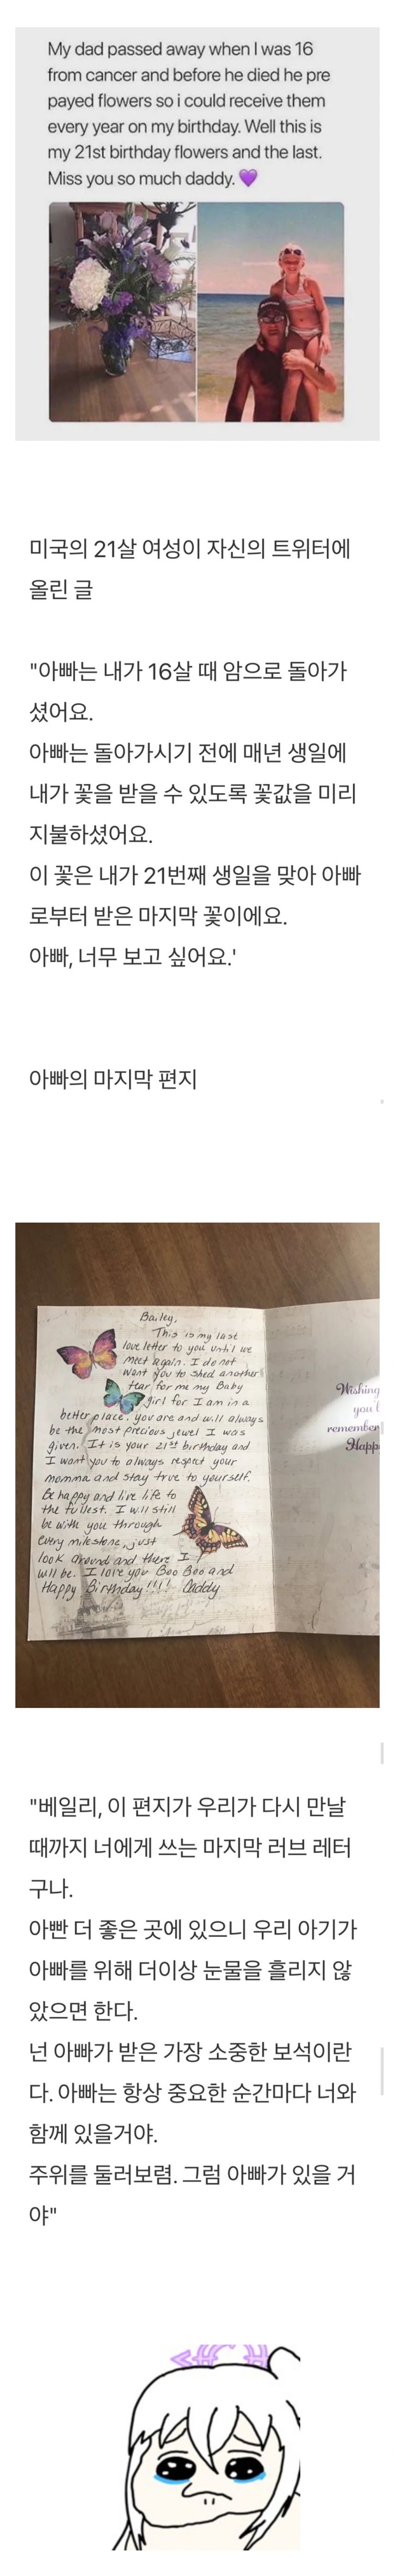 My dad passed away when I was 16
from cancer and before he died he pre
payed flowers so i could receive them
every year on my birthday. Well this is
my 21st birthday flowers and the last.
Miss you so much daddy. 💜
미국의 21살 여성이 자신의 트위터에
올린 글
"아빠는 내가 16살 때 암으로 돌아가
셨어요.
아빠는 돌아가시기 전에 매년 생일에
내가 꽃을 받을 수 있도록 꽃값을 미리
지불하셨어요.
이 꽃은 내가 21번째 생일을 맞아 아빠
로부터 받은 마지막 꽃이에요.
아빠, 너무 보고 싶어요.'
아빠의 마지막 편지
Bailey,
This is my last
love letter to you until we
meet again. I do not
want you to shed another
tear for me my Baby
girl for I am in a
better place. you are and will always
be the most precious jewel I was
given. It is your 21st birthday and
I want you to always respect your
momma and stay true to yourself.
Be happy and live life to
the fullest. I will still
be with you through
every milestone, just
look around and there I
will be. I love you Boo Boo and
Happy Birthday!!!! Daddy
Wishing
you
remember
Happ
"베일리, 이 편지가 우리가 다시 만날
때까지 너에게 쓰는 마지막 러브 레터
구나.
아빤 더 좋은 곳에 있으니 우리 아기가
아빠를 위해 더이상 눈물을 흘리지 않
았으면 한다.
넌 아빠가 받은 가장 소중한 보석이란
다. 아빠는 항상 중요한 순간마다 너와
함께 있을거야.
주위를 둘러보렴. 그럼 아빠가 있을 거
야"